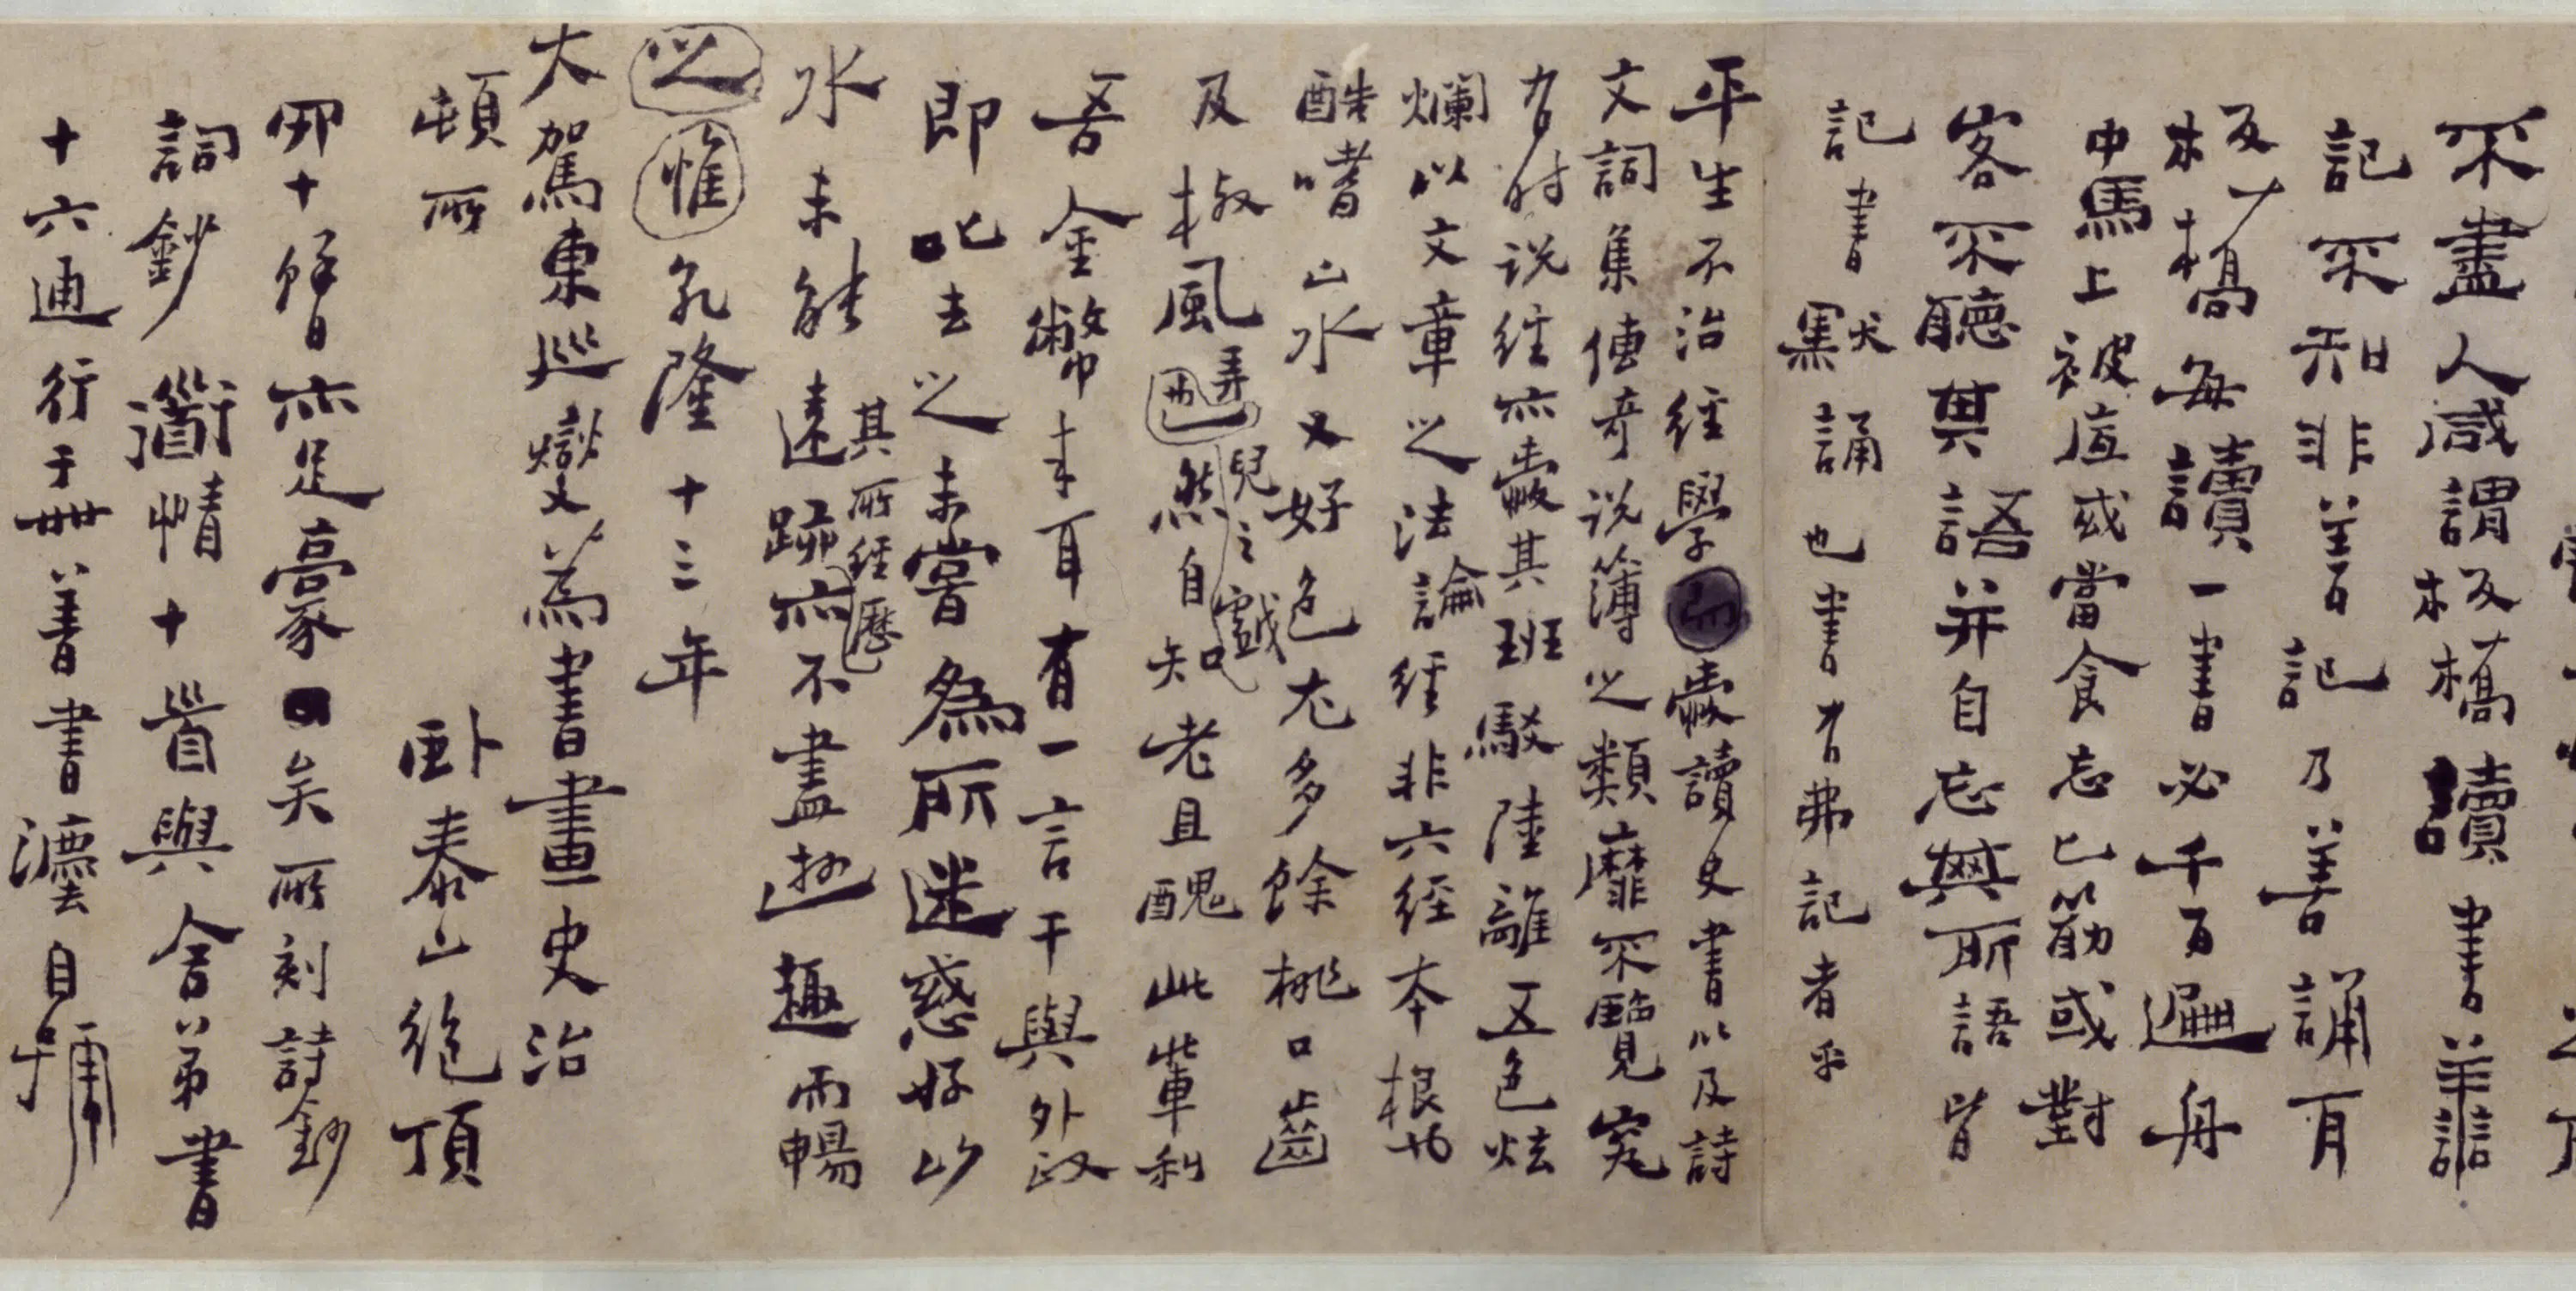 不盡人咸謂板橋讀書善
記不知非善記乃善誦耳
板橋每讀一書必千百遍舟
中馬上被底或當食忘匕筯或對
客不聽其語并自忘其所語皆
記書默誦也書有弗記者乎
平生不治經學愛讀史書以及詩
文詞集傳奇說簿之類靡不覽究
有時說經亦愛其班駁陸離五色炫
爛以文章之法論經非六經本根也
酷嗜山水又好色尤多餘桃口齒
及椒風弄兒之戲然自知老且醜此輩利
吾金幣來耳有一言干與外政
即叱去之未嘗為所迷惑好山
水未能遠跡其所經歷亦不盡遊趣而暢
之惟乾隆十三年
大駕東巡燮為書畫史治
頓所臥泰山絕頂
四十餘日亦足豪矣所刻詩鈔
詞鈔道情十首與舍弟書
十六通行于世善書書灋自號